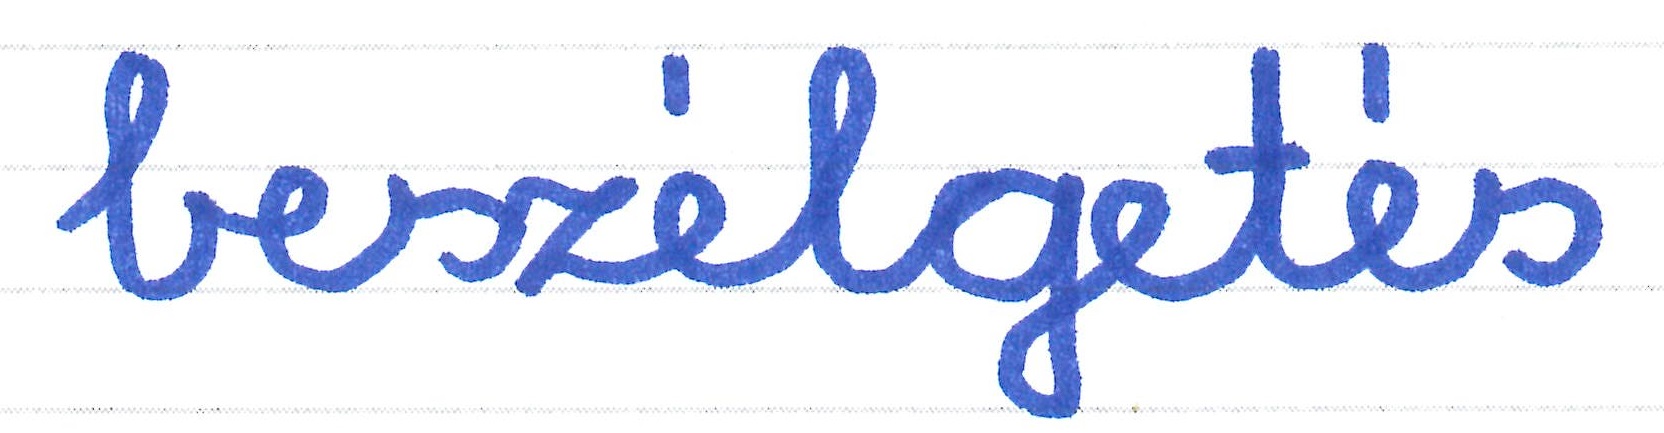 beszélgetés